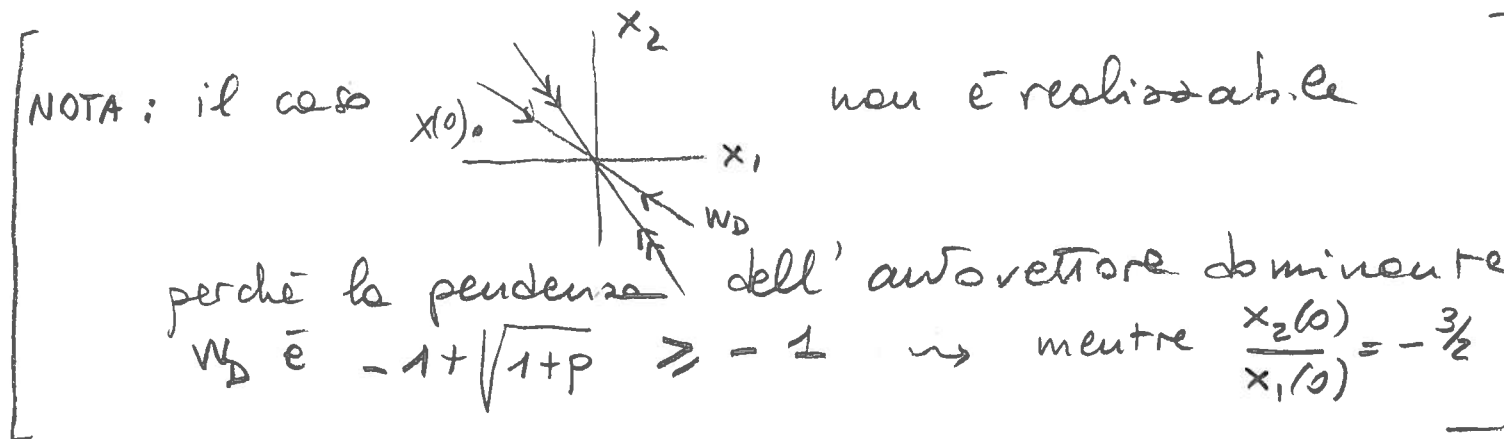 x₂
NOTA : il caso x(0) non è realizzabile
x₁
W_D
perché la pendenza dell' autovettore dominante
W_D è -1+√(1+p) ≥ -1 ⇝ mentre x₂(0)/x₁(0) = - 3/2